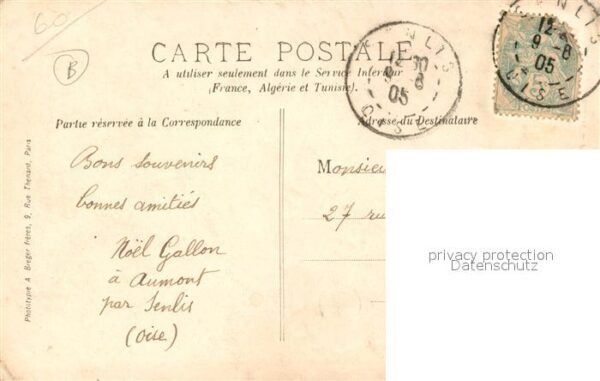 60
B
CARTE POSTALE
A utiliser seulement dans le Service Intérieur
(France, Algérie et Tunisie).
SENLIS
12 30
9 - 8
05
OISE
NLIS
12
9 - 8
05
OISE
Partie réservée à la Correspondance
Adresse du Destinataire
Bons souvenirs
bonnes amitiés
Noël Gallon
à Aumont
par Senlis
(Oise)
Monsieu
27 ru
privacy protection
Datenschutz
Phototypie A Breger Frères, 9, Rue Thenard, Paris